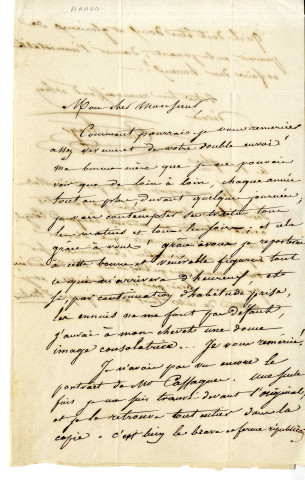 ARAGO
Mon cher Monsieur,
Comment pourrais-je vous remercier
assez vivement de votre double envoi!
ma bonne mère que je ne pouvais
voir que de loin à loin, chaque année
tout au plus, durant quelques journées,
je vais contempler ses traits tous
les matins et tous les soirs; et cela
grâce à vous! grâce à vous je reporterai
à cette bonne et vénérable figure tout
ce qui m'arrivera d'heureux et
si, par continuation d'habitude prise,
les ennuis ne me font pas défaut,
j'aurai à mon chevet une douce
image consolatrice... Je vous remercie.
Je n'avais pas vu encore le
portrait de Mr
fois je me suis trouvé devant l'original,
et je le retrouve tout entier dans la
copie. c'est bien le brave et ferme républicain